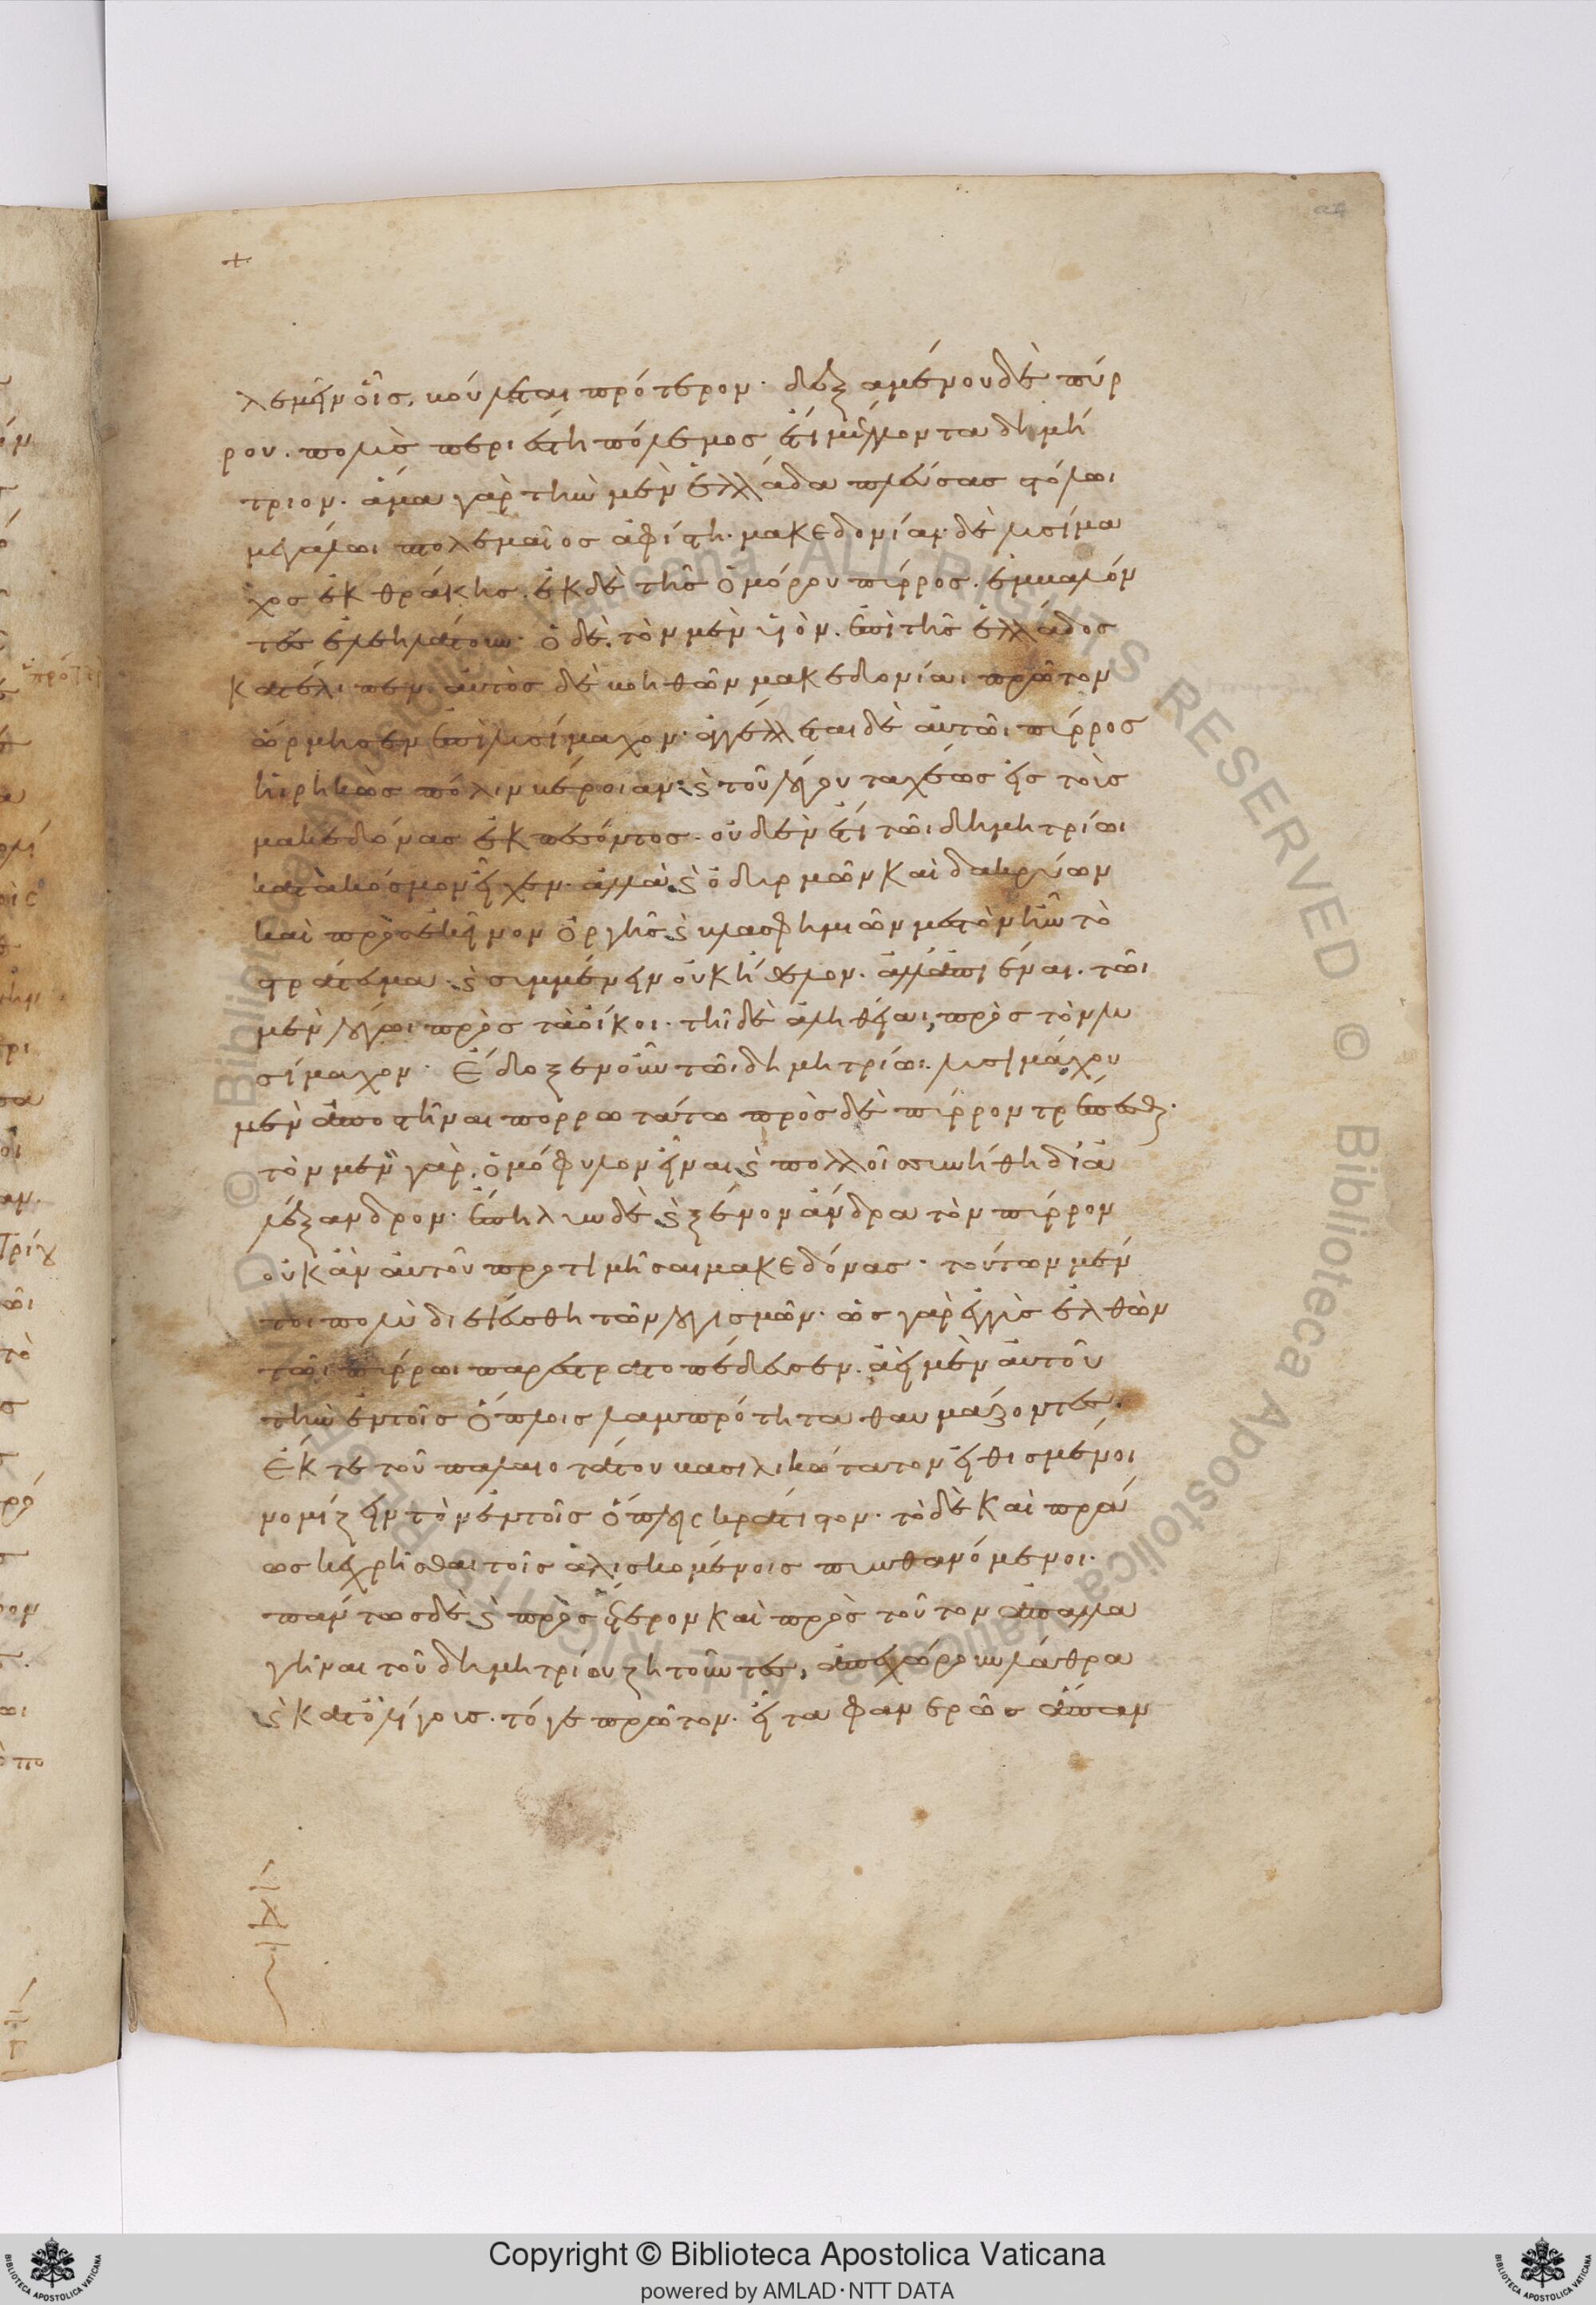 λεμεῖν οἷς, βούλεται πρότερον· δεξαμένου δὲ πύρ
ρου. πολὺς περιέστη πόλεμος ἔτι μέλλοντα δημή
τριον. ἅμα γὰρ τὴν μὲν ἑλλάδα πλεύσας στόλωι
μεγάλωι πτολεμαῖος ἀφίστη. μακεδονίαν· δὲ λυσίμα
χος ἐκ θράκης. ἐκ δὲ τῆς ὁμόρου πύρρος. ἐμβαλόν
τες ἐλεηλάτουν· ὁ δὲ, τὸν μὲν υἱὸν. ἐπὶ τῆς ἑλλάδος
κατέλιπεν. αὐτὸς δὲ βοηθῶν μακεδονίαι πρῶτον
ὥρμησεν ἐπὶ λυσίμαχον· ἀγγέλλεται δὲ αὐτῶι πύρρος
ἡιρηκὼς πόλιν βέροιαν· ϗ τοῦ λόγου ταχέως εἰς τοὺς
μακεδόνας ἐκπεσόντος. οὐδὲν ἔτι τῶι δημητρίωι
κατὰ κόσμον εἶχεν. ἀλλὰ ϗ ὀδυρμῶν καὶ δακρύων
καὶ πρὸς ἐκεῖνον ὀργῆς ϗ βλασφημιῶν μεστὸν ἦν τὸ
στράτευμα· ϗ συμμένειν οὐκ ἤθελον. ἀλλ' ἀπιέναι. τῶι
μὲν λόγωι πρὸς τὰ οἴκοι. τῆι δὲ ἀληθείαι, πρὸς τὸν λυ
σίμαχον· ἔδοξεν οὖν τῶι δημητρίωι. λυσιμάχου
μὲν ἀποστῆναι πορρωτάτω πρὸς δὲ πύρρον τρέπεσθαι·
τὸν μὲν γὰρ. ὁμόφυλον εἶναι ϗ πολλοῖς συνήθη δι' ἀ
λέξανδρον. ἔπηλυν δὲ ϗ ξένον ἄνδρα τὸν πύρρον
οὐκ ἂν αὐτοῦ προτιμῆσαι μακεδόνας· τούτων μέν
τοι πολὺ διεψεύσθη τῶν λογισμῶν. ὡς γὰρ ἐγγὺς ἐλθὼν
τῶι πύρρωι παρεστρατοπέδευσεν. ἀεὶ μὲν αὐτοῦ
τὴν ἐν τοῖς ὅπλοις λαμπρότητα θαυμάζοντες.
ἔκ τε τοῦ παλαιοτάτου βασιλικώτατον εἰθισμένοι
νομίζειν τὸν ἐν τοῖς ὅπλοις κράτιστον. τὸ δὲ καὶ πρά
ως κεχρῆσθαι τοῖς ἁλισκομένοις πυνθανόμενοι.
πάντως δὲ ϗ πρὸς ἕτερον καὶ πρὸς τοῦτον ἀπαλλα
γῆναι τοῦ δημητρίου ζητοῦντες, ἀπεχώρουν λάθρα
ϗ κατ' ὀλίγους. τό γε πρῶτον. εἶτα φανερῶς ἅπαν